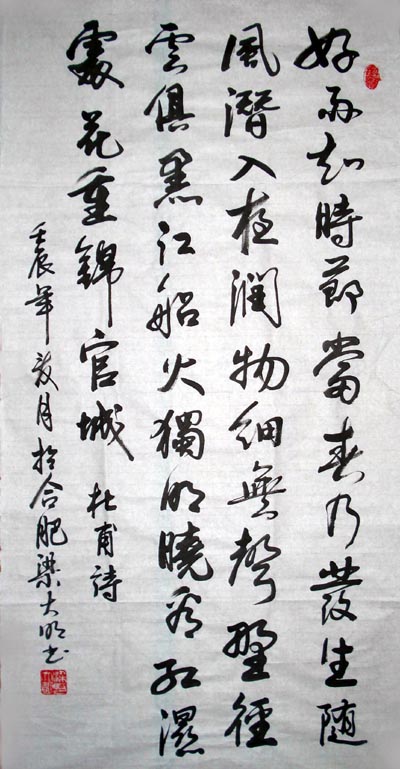 好雨知時節當春乃發生随
風潛入夜潤物細無聲野徑
雲俱黑江船火獨明曉看紅濕
處花重錦官城 杜甫詩
壬辰年月於合肥梁大明书